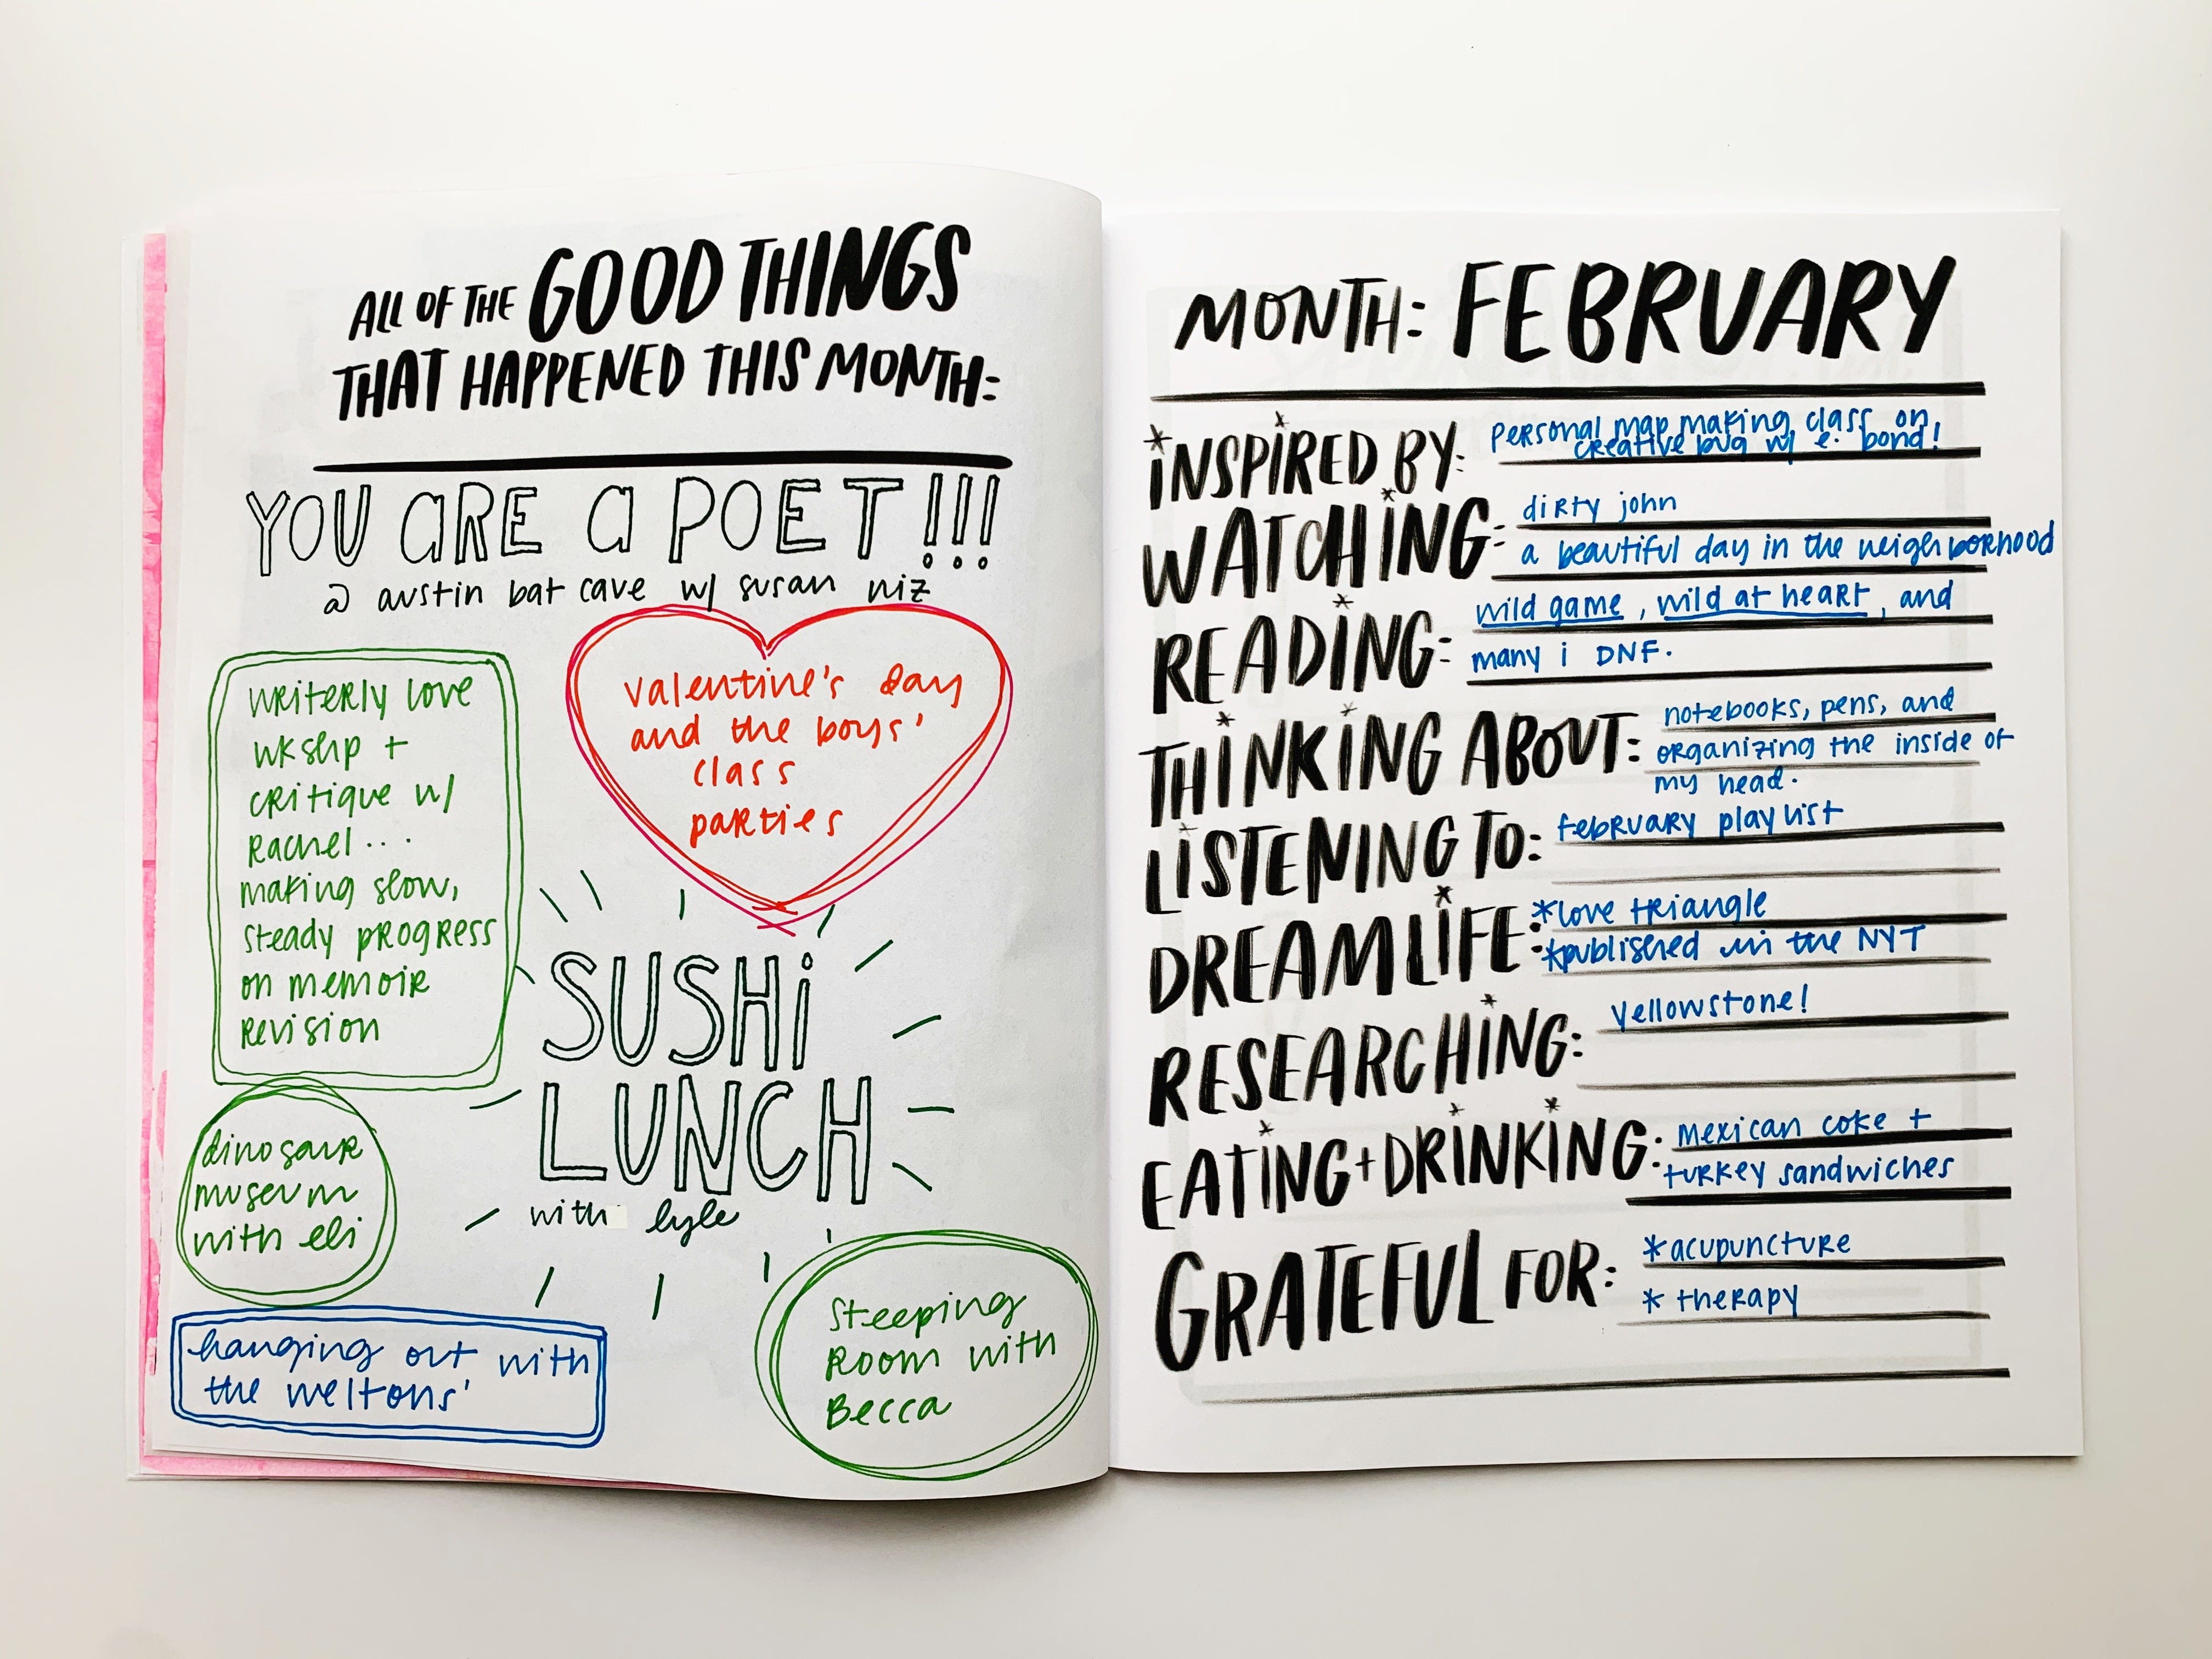 ALL OF THE GOOD THINGS
THAT HAPPENED THIS MONTH:
YOU ARE a POET!!!
@ austin bat cave w/ susan niz
writerly love
wkshp +
critique w/
Rachel...
making slow,
steady progress
on memoir
revision
valentine's day
and the boys'
class
parties
SUSHi
LUNCH
with lyle
dinosaur
museum
with eli
hanging out with
the weltons'
Steeping
Room with
Becca
MONTH: FEBRUARY
INSPIRED BY: personal map making class on
creative bug w/ e. bond!
WATCHING: dirty john
a beautiful day in the neighborhood
READING: wild game, wild at heart, and
many i DNF.
THINKING ABOUT: notebooks, pens, and
organizing the inside of
my head.
LISTENING TO: february playlist
DREAM LIFE: *love triangle
*published in the NYT
RESEARCHING: yellowstone!
EATING + DRINKING: mexican coke +
turkey sandwiches
GRATEFUL FOR: *acupuncture
* therapy